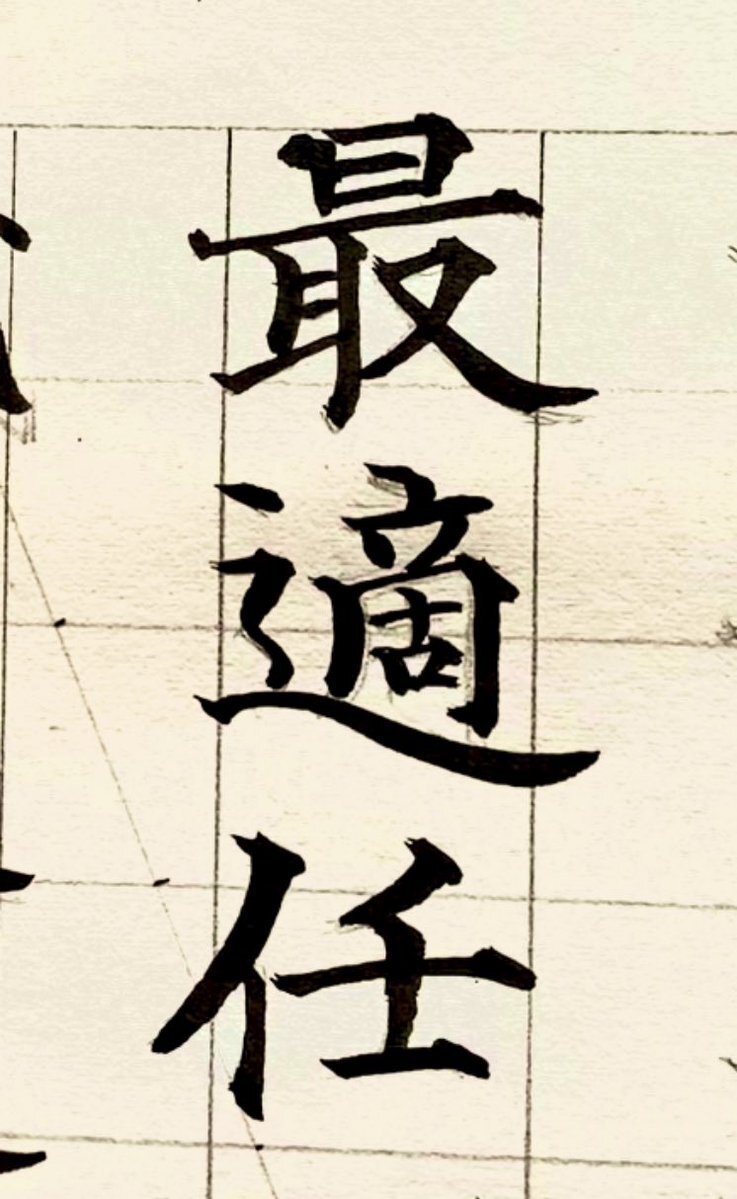 最適任